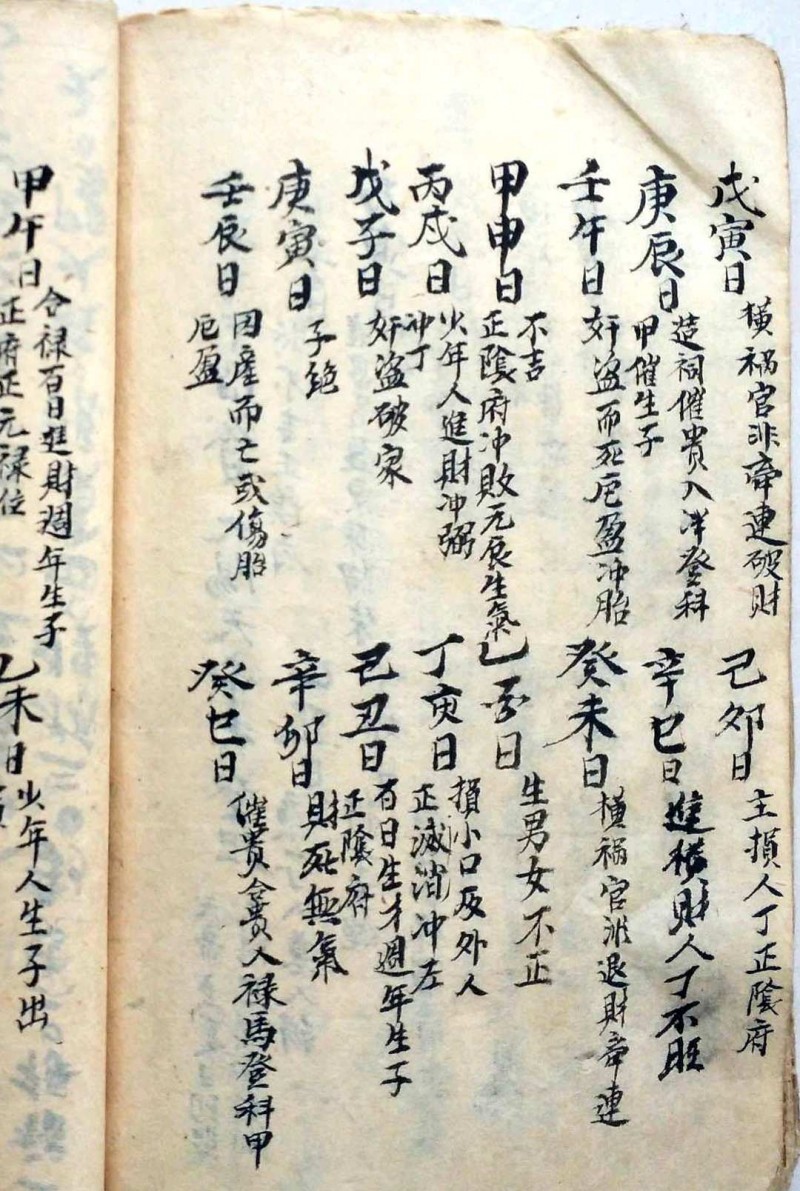 戊寅日 横祸官非牽連破財
己卯日 主損人丁正陰府
庚辰日 造祠催貴入泮登科
甲催生子
辛巳日 進横財人丁不旺
壬午日 奸盗而死厄盈冲胎
癸未日 横祸官非退財牽連
甲申日 不吉
正陰府冲敗元辰生氣
乙酉日 生男女不正
丙戍日 少年人進財冲弼
冲丁
丁亥日 損小口及外人
正滅消冲左
戊子日 奸盗破家
己丑日 百日生才週年生子
正陰府
庚寅日 子絶
辛卯日 財死無氣
壬辰日 因産而亡或傷胎
厄盈
癸巳日 催貴貴入禄馬登科甲
甲午日 合禄百日進財週年生子
正府正元禄位
乙未日 少年人生子出